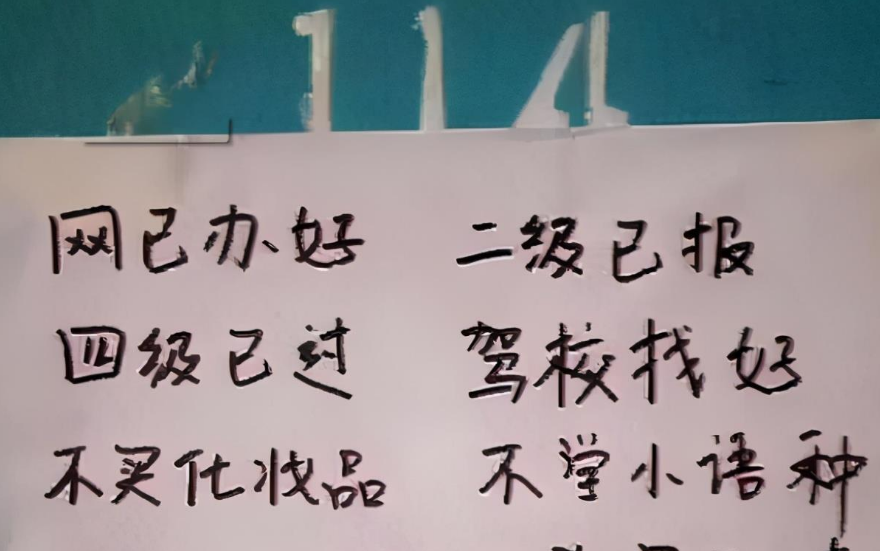 114
网已办好 二级已报
四级已过 驾校找好
不买化妆品 不学小语种